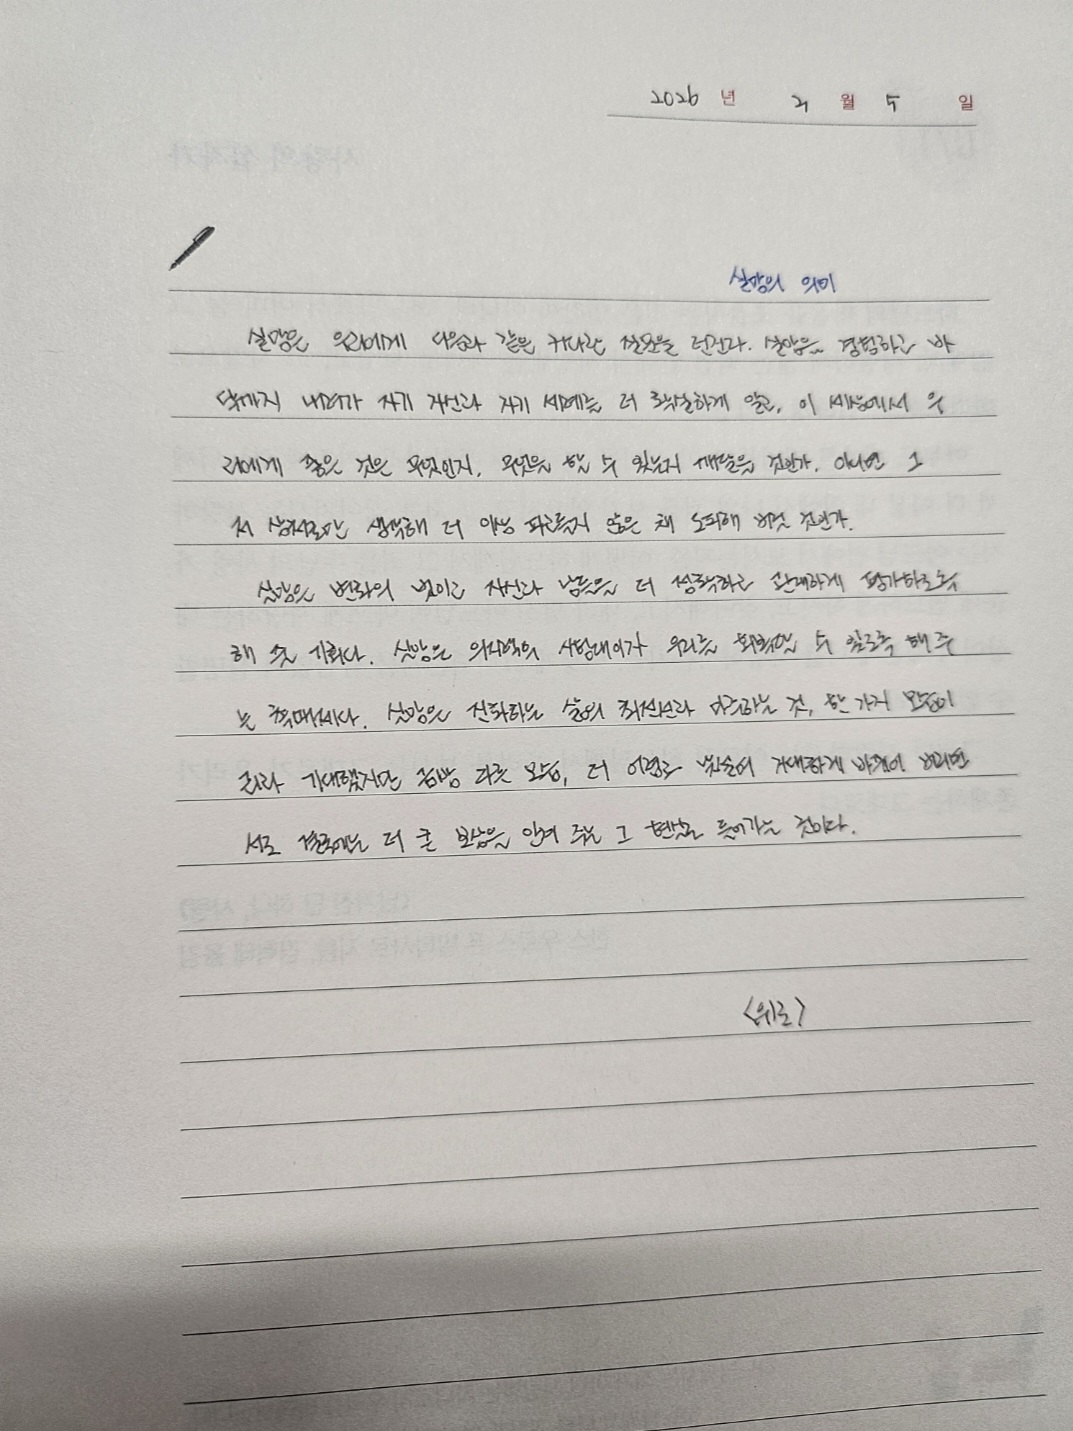 2026 년 2 월 5 일
실망의 의미
실망은 우리에게 다음과 같은 커다란 질문을 던진다. 실망을 경험하고 바
닥까지 내려가 자기 자신과 자기 세계를 더 확실하게 알고, 이 세상에서 우
리에게 좋은 것은 무엇인지, 무엇을 할 수 있는지 깨달을 것인가, 아니면 그
저 상처로만 생각해 더 이상 파고들지 않은 채 도피해 버릴 것인가.
실망은 변화의 벗이고 자신과 남들을 더 정확하고 관대하게 평가하도록
해 줄 기회다. 실망은 의지력의 시험대이자 우리를 회복할 수 있도록 해 주
는 촉매제다. 실망은 진화하는 삶의 최전선과 마주하는 것, 한 가지 모습이
리라 기대했지만 금방 다른 모습, 더 어렵고 낯설어 거대하게 바뀌어 버리면
서도 결국에는 더 큰 보상을 안겨 주는 그 현실로 들어가는 것이다.
<위로>